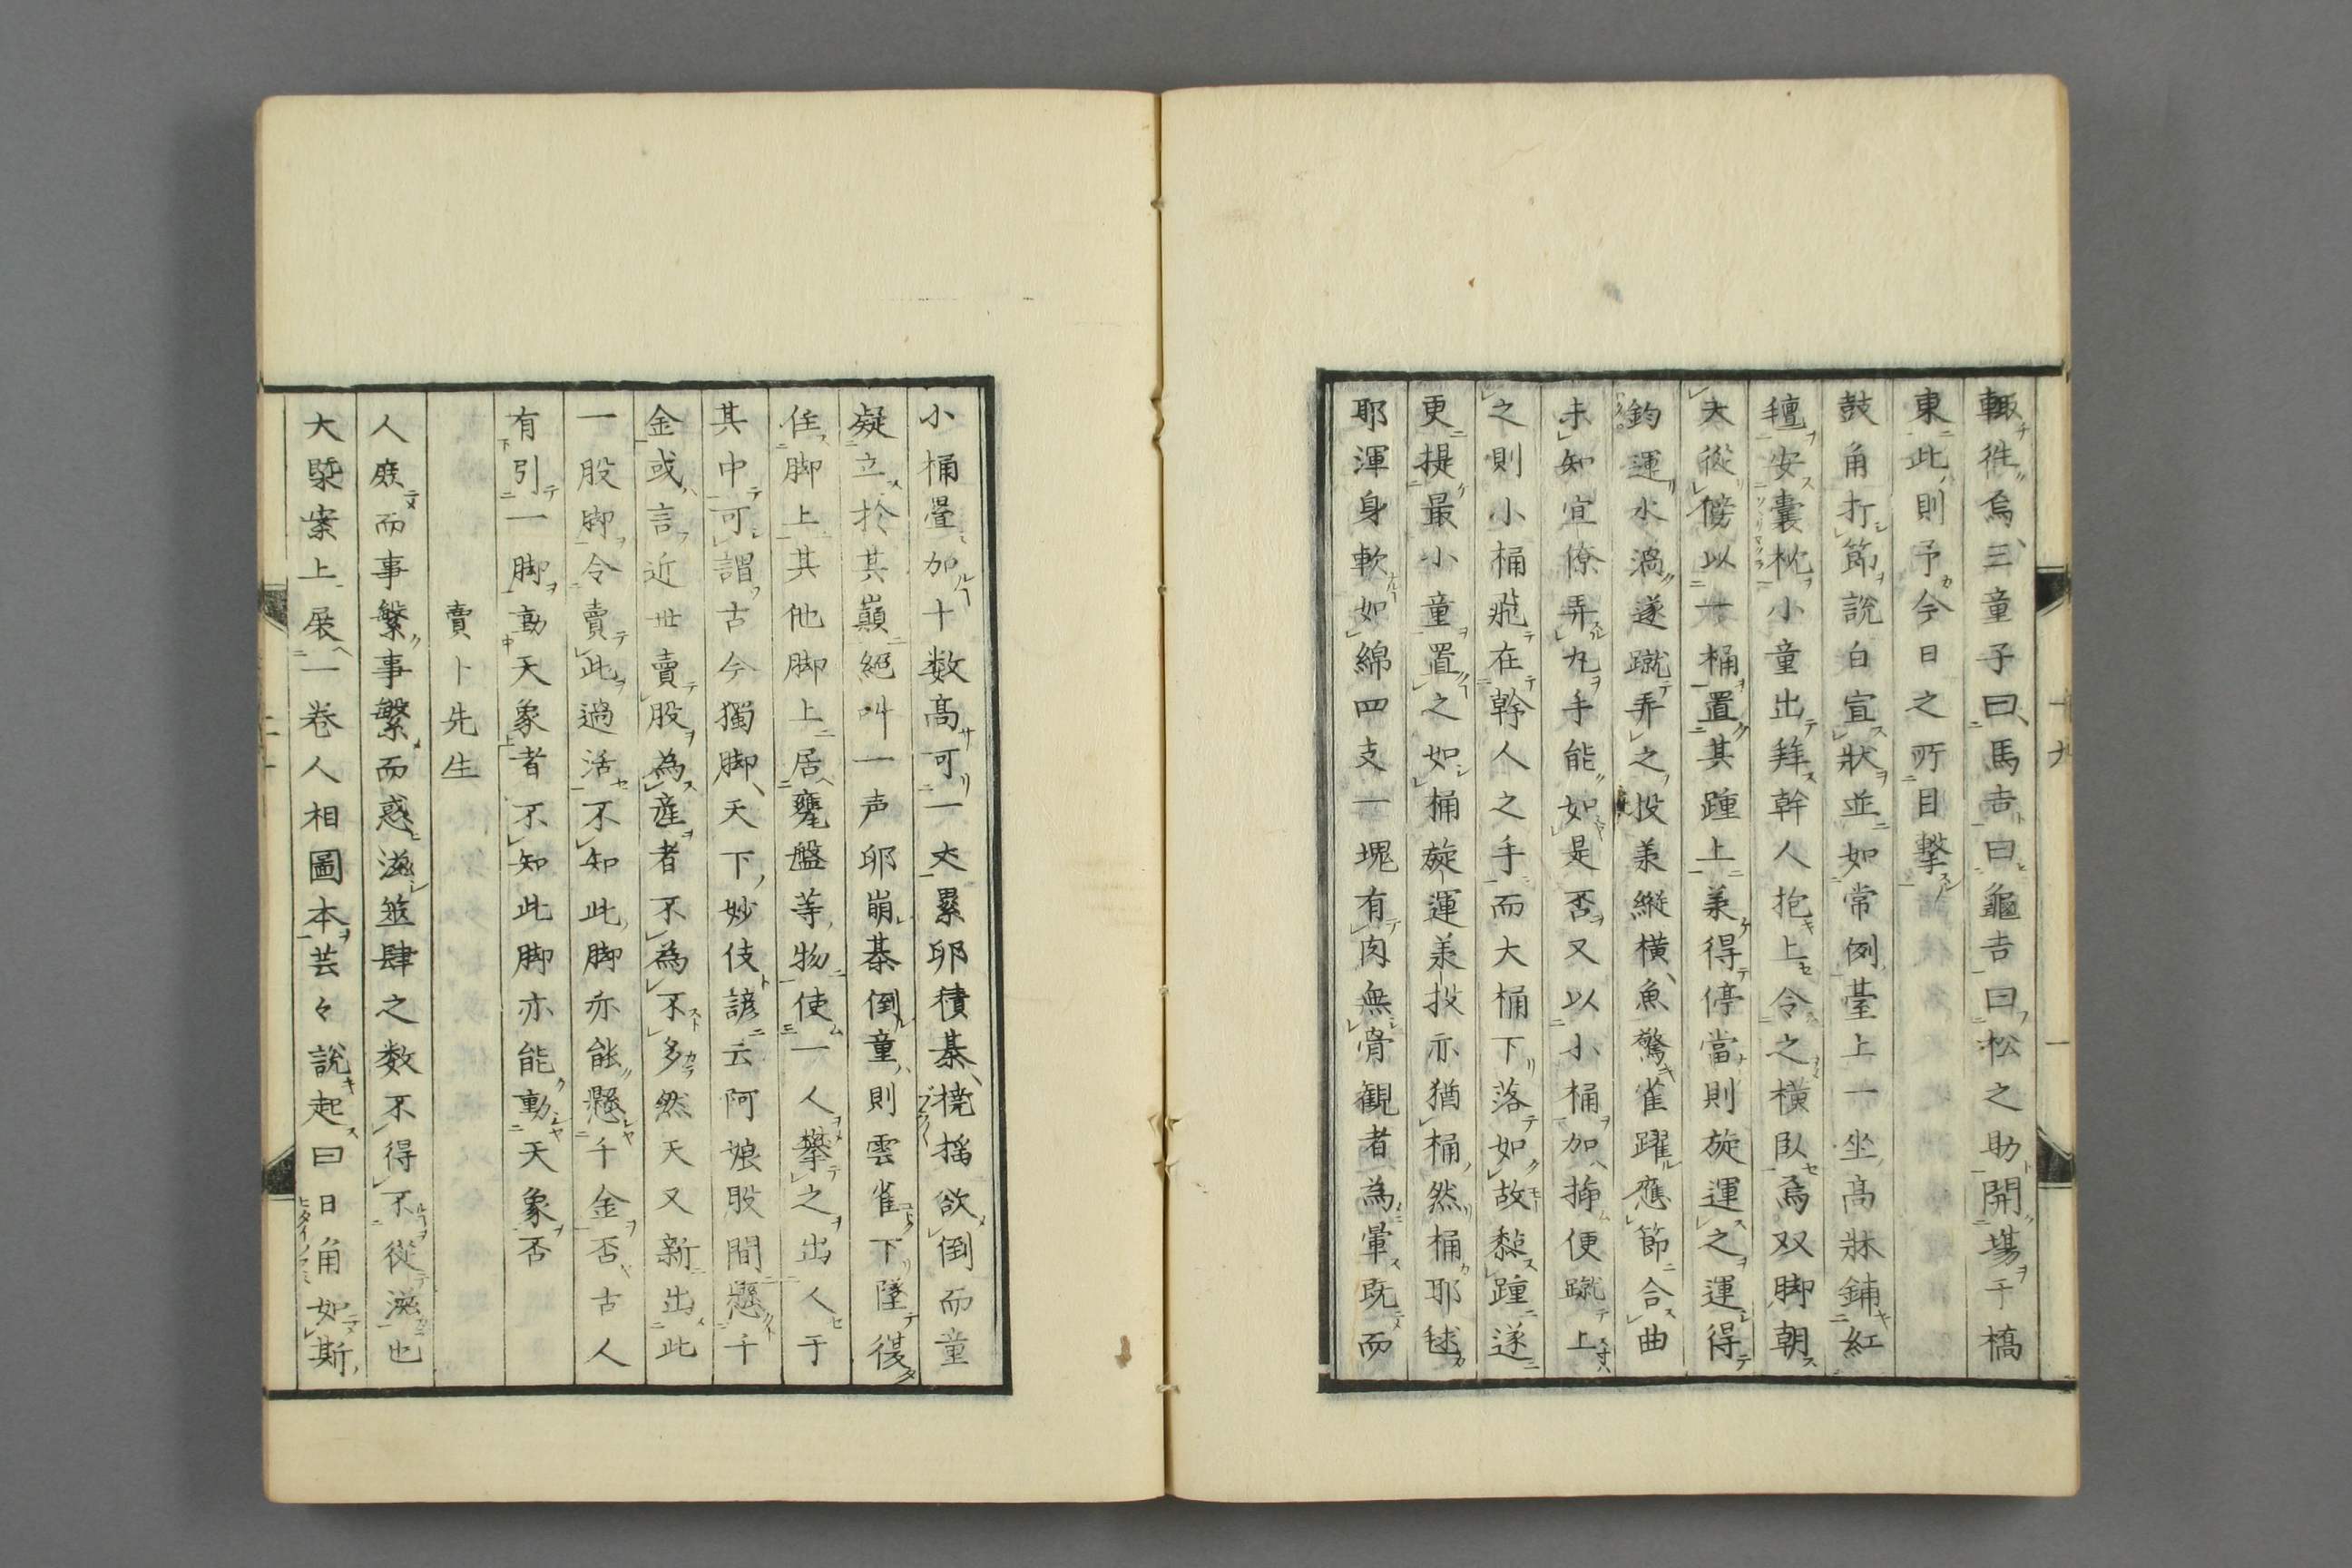 輙徃焉、三童子曰、馬吉曰龜吉曰松之助開塲于橋
東此則予今日之所目擊
鼓角打節說白宣狀並如常例臺上一坐高牀鋪紅
氊安囊枕小童出拜幹人抱上令之橫臥焉双脚朝
天從傍以一桶置其踵上羕得停當則旋運之運得
鈞運水渦遂蹴弄之投羕縱橫、魚驚雀躍應節合曲
未知宜僚弄丸手能如是否又以小桶加掵便蹴上
之則小桶飛在幹人之手而大桶下落如故黏踵遂
更提最小童置之如桶旋運羕投亦猶桶然桶耶毬
耶渾身軟如綿四支一塊有肉無骨観者為暈既而
小桶疊加十数高可一丈累卵積碁、橈搖欲倒而童
凝立於其巔絕叫一声卵崩碁倒童則雲雀下墜復
住脚上其他脚上居甕盤等物使一人攀之出人于
其中可謂古今獨脚、天下妙伎諺云阿娘股間懸千
金或言近世賣股為産者不為不多然天又新出此
一股脚令賣此過活不知此脚亦能懸千金否古人
有引一脚動天象者不知此脚亦能動天象否
賣卜先生
人庶而事繁事繁而惑滋筮肆之数不得不從滋也
大槩案上展一卷人相圖本芸々說起曰日角如斯
十九
二十